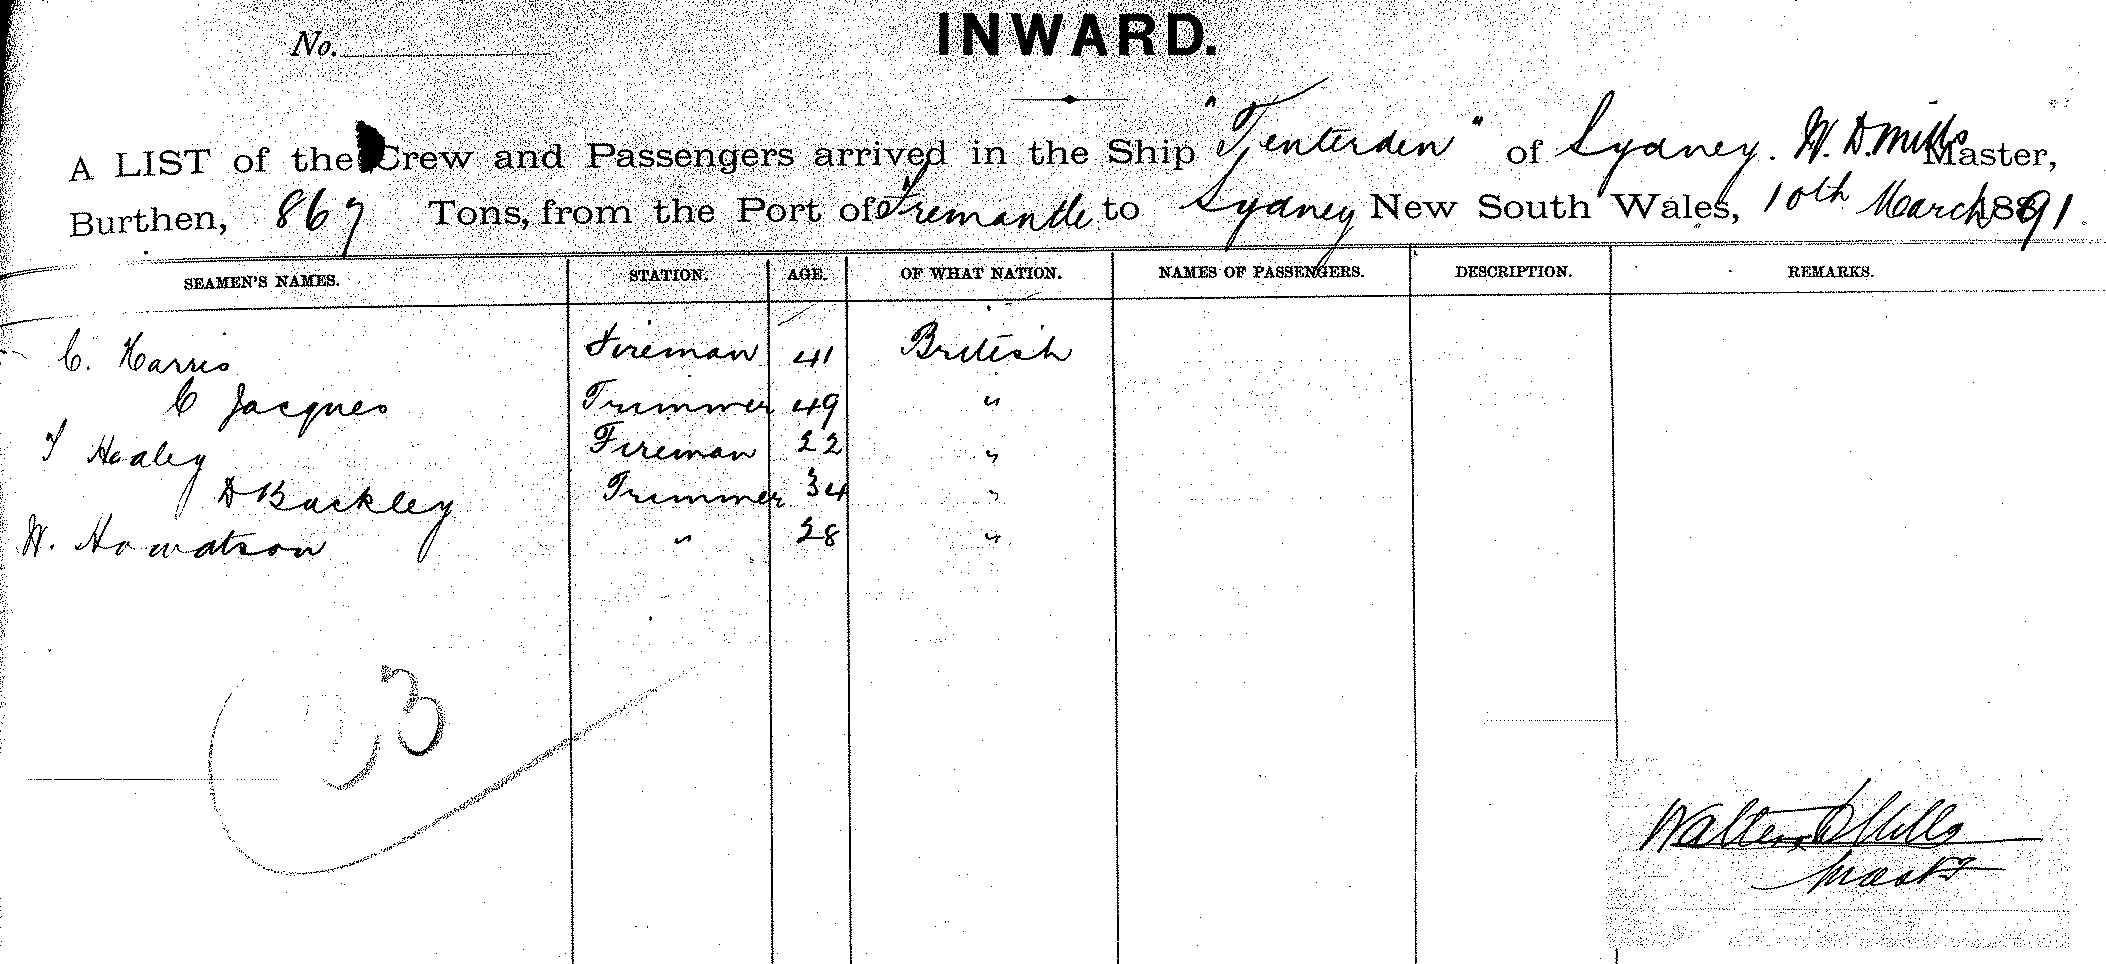 No.
INWARD.
A LIST of the Crew and Passengers arrived in the Ship "Tenterden" of Sydney. W. D. Mills Master,
Burthen, 867 Tons, from the Port of Fremantle to Sydney New South Wales, 10th March 1891.
SEAMEN'S NAMES. STATION. AGE. OF WHAT NATION. NAMES OF PASSENGERS. DESCRIPTION. REMARKS.
C. Harris Fireman 41 British
C Jacques Trimmer 49 "
T Healey Fireman 22 "
D Buckley Trimmer 34 "
W. Howatson " 28 "
23
Walter D Mills
Master